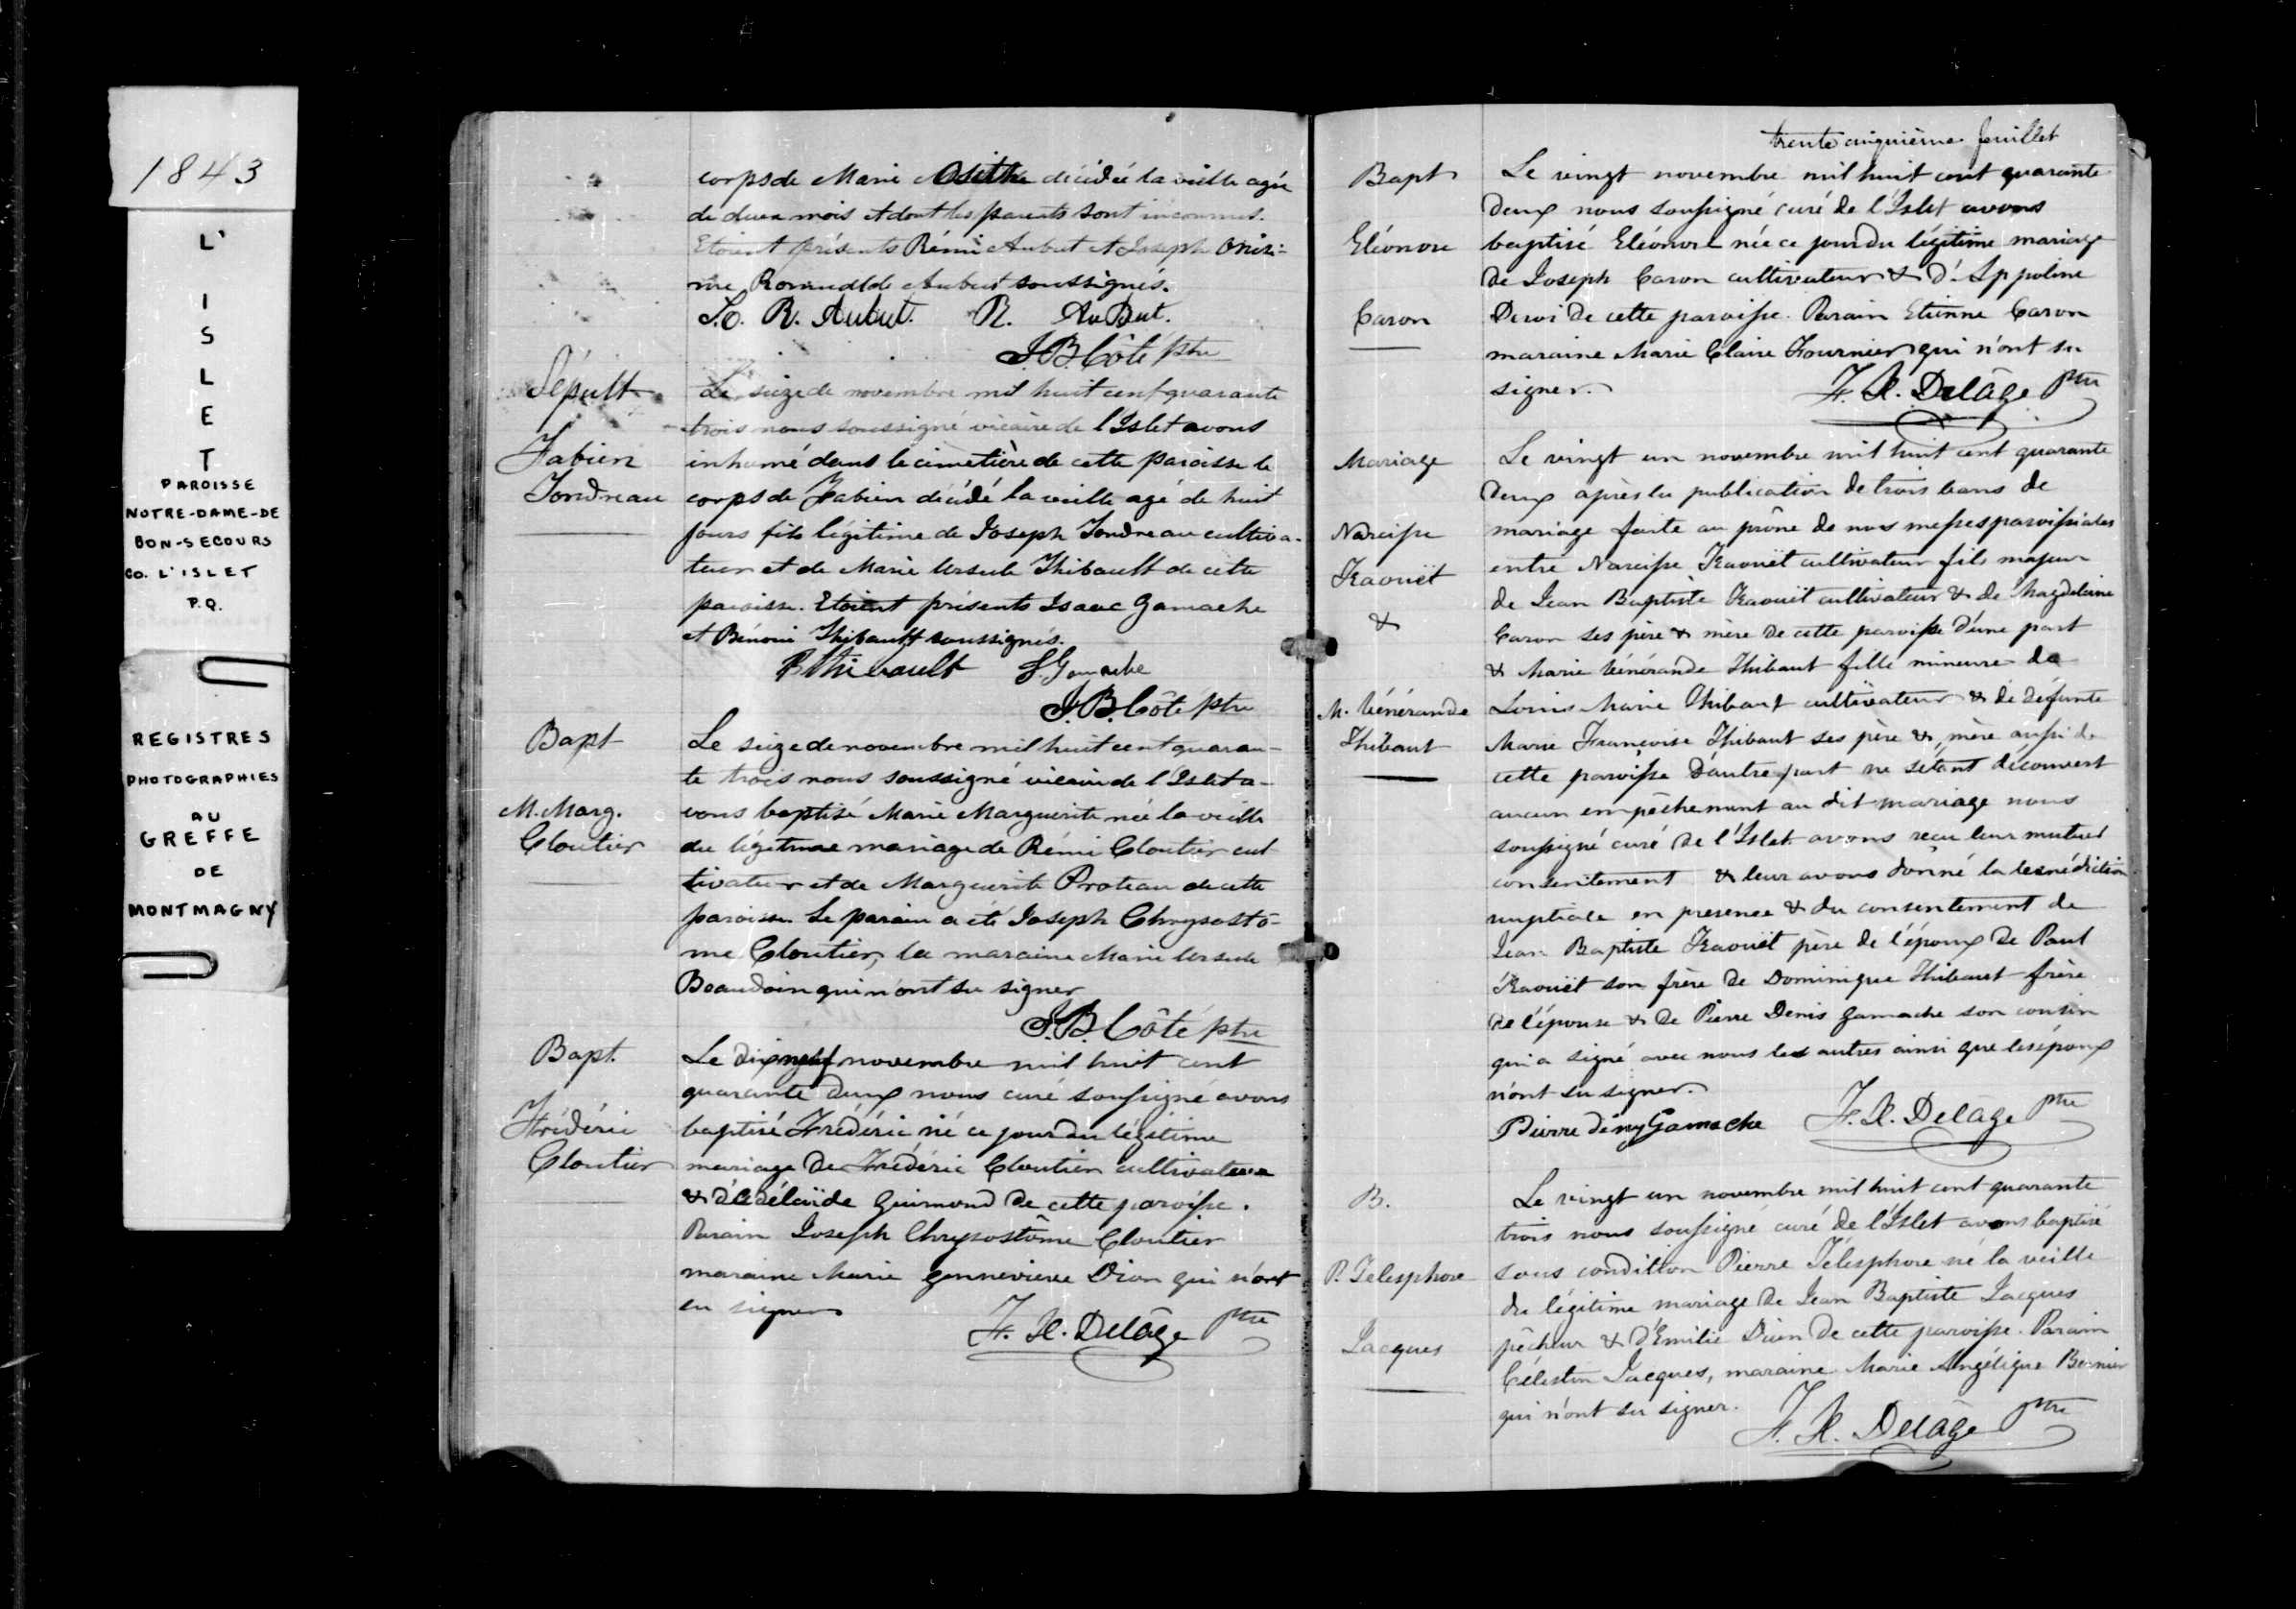 1843
L'
I
S
L
E
T
PAROISSE
NOTRE-DAME-DE
BON-SECOURS
CO. L'ISLET
P.Q.
REGISTRES
PHOTOGRAPHIES
AU
GREFFE
DE
MONTMAGNY
corps de Marie Osithe décédée la veille agée
de deux mois et dont les parents sont inconnus.
Etoient présents Rémi Aubut et Joseph Onizi-
me Romuald Aubut soussignés.
J.O. R. Aubut. R. AuBut.
J.B. Côté ptre
Sépult
Fabien
Fondreau
Le seize de novembre mil huit cent quarante
trois nous soussigné vicaire de l'Islet avons
inhumé dans le cimetière de cette paroisse le
corps de Fabien décédé la veille agé de huit
jours fils légitime de Joseph Fondreau cultiva-
teur et de Marie Ursule Thibault de cette
paroisse. Etoient présents Isaac Gamache
et Bénoni Thibault soussignés.
B Thibault I. Gamache
J.B. Côté ptre
Bapt
M. Marg.
Cloutier
Le seize de novembre mil huit cent quaran-
te trois nous soussigné vicaire de l'Islet a-
vons baptisé Marie Marguerite née la veille
du légitime mariage de Rémi Cloutier cul
tivateur et de Marguerite Proteau de cette
paroisse. Le parain a été Joseph Chrysostô-
me Cloutier, la maraine Marie Ursule
Beaudoin qui n'ont su signer
J.B. Côté ptre
Bapt.
Frédéric
Cloutier
Le dixneuf novembre mil huit cent
quarante deux nous curé soussigné avons
baptisé Frédéric né ce jour du légitime
mariage de Frédéric Cloutier cultivateur
& d'Adélaïde Guimond de cette paroisse.
Parain Joseph Chrysostôme Cloutier
maraine Marie Gennevieve Dion qui n'ont
su signer
F. X. Delâge Ptre
trente cinquième feuillet
Bapt
Eléonore
Caron
Le vingt novembre mil huit cent quarante
deux nous soussigné curé de l'Islet avons
baptisé Eléonore née ce jour du légitime mariage
de Joseph Caron cultivateur & d'Appoline
Deroi de cette paroisse. Parain Etienne Caron
maraine Marie Claire Fournier qui n'ont su
signer.
F. X. Delâge Ptre
Mariage
Narcisse
Kaouët
&
M. Vénérande
Thibaut
Le vingt un novembre mil huit cent quarante
deux après la publication de trois bans de
mariage faite au prône de nos messes paroissiales
entre Narcisse Kaouët cultivateur fils majeur
de Jean Baptiste Kaouët cultivateur & de Magdeleine
Caron ses père & mère de cette paroisse d'une part
& Marie Vénérande Thibaut fille mineure de
Louis Marie Thibaut cultivateur & de défunte
Marie Françoise Thibaut ses père & mère aussi de
cette paroisse d'autre part ne s'étant découvert
aucun empêchement au dit mariage nous
soussigné curé de l'Islet avons reçu leur mutuel
consentement & leur avons donné la bénédiction
nuptiale en presence & du consentement de
Jean Baptiste Kaouët père de l'époux de Paul
Kaouët son frère de Dominique Thibaut frère
de l'épouse & de Pierre Denis Gamache son cousin
qui a signé avec nous les autres ainsi que les époux
n'ont su signer.
Pierre deny Gamache F. X. Delâge Ptre
B.
P. Telesphore
Jacques
Le vingt un novembre mil huit cent quarante
trois nous soussigné curé de l'Islet avons baptisé
sous condition Pierre Télesphore né la veille
du légitime mariage de Jean Baptiste Jacques
pêcheur & d'Emilie Dion de cette paroisse. Parain
Célestin Jacques, maraine Marie Angélique Bernier
qui n'ont su signer.
F. X. Delâge Ptre